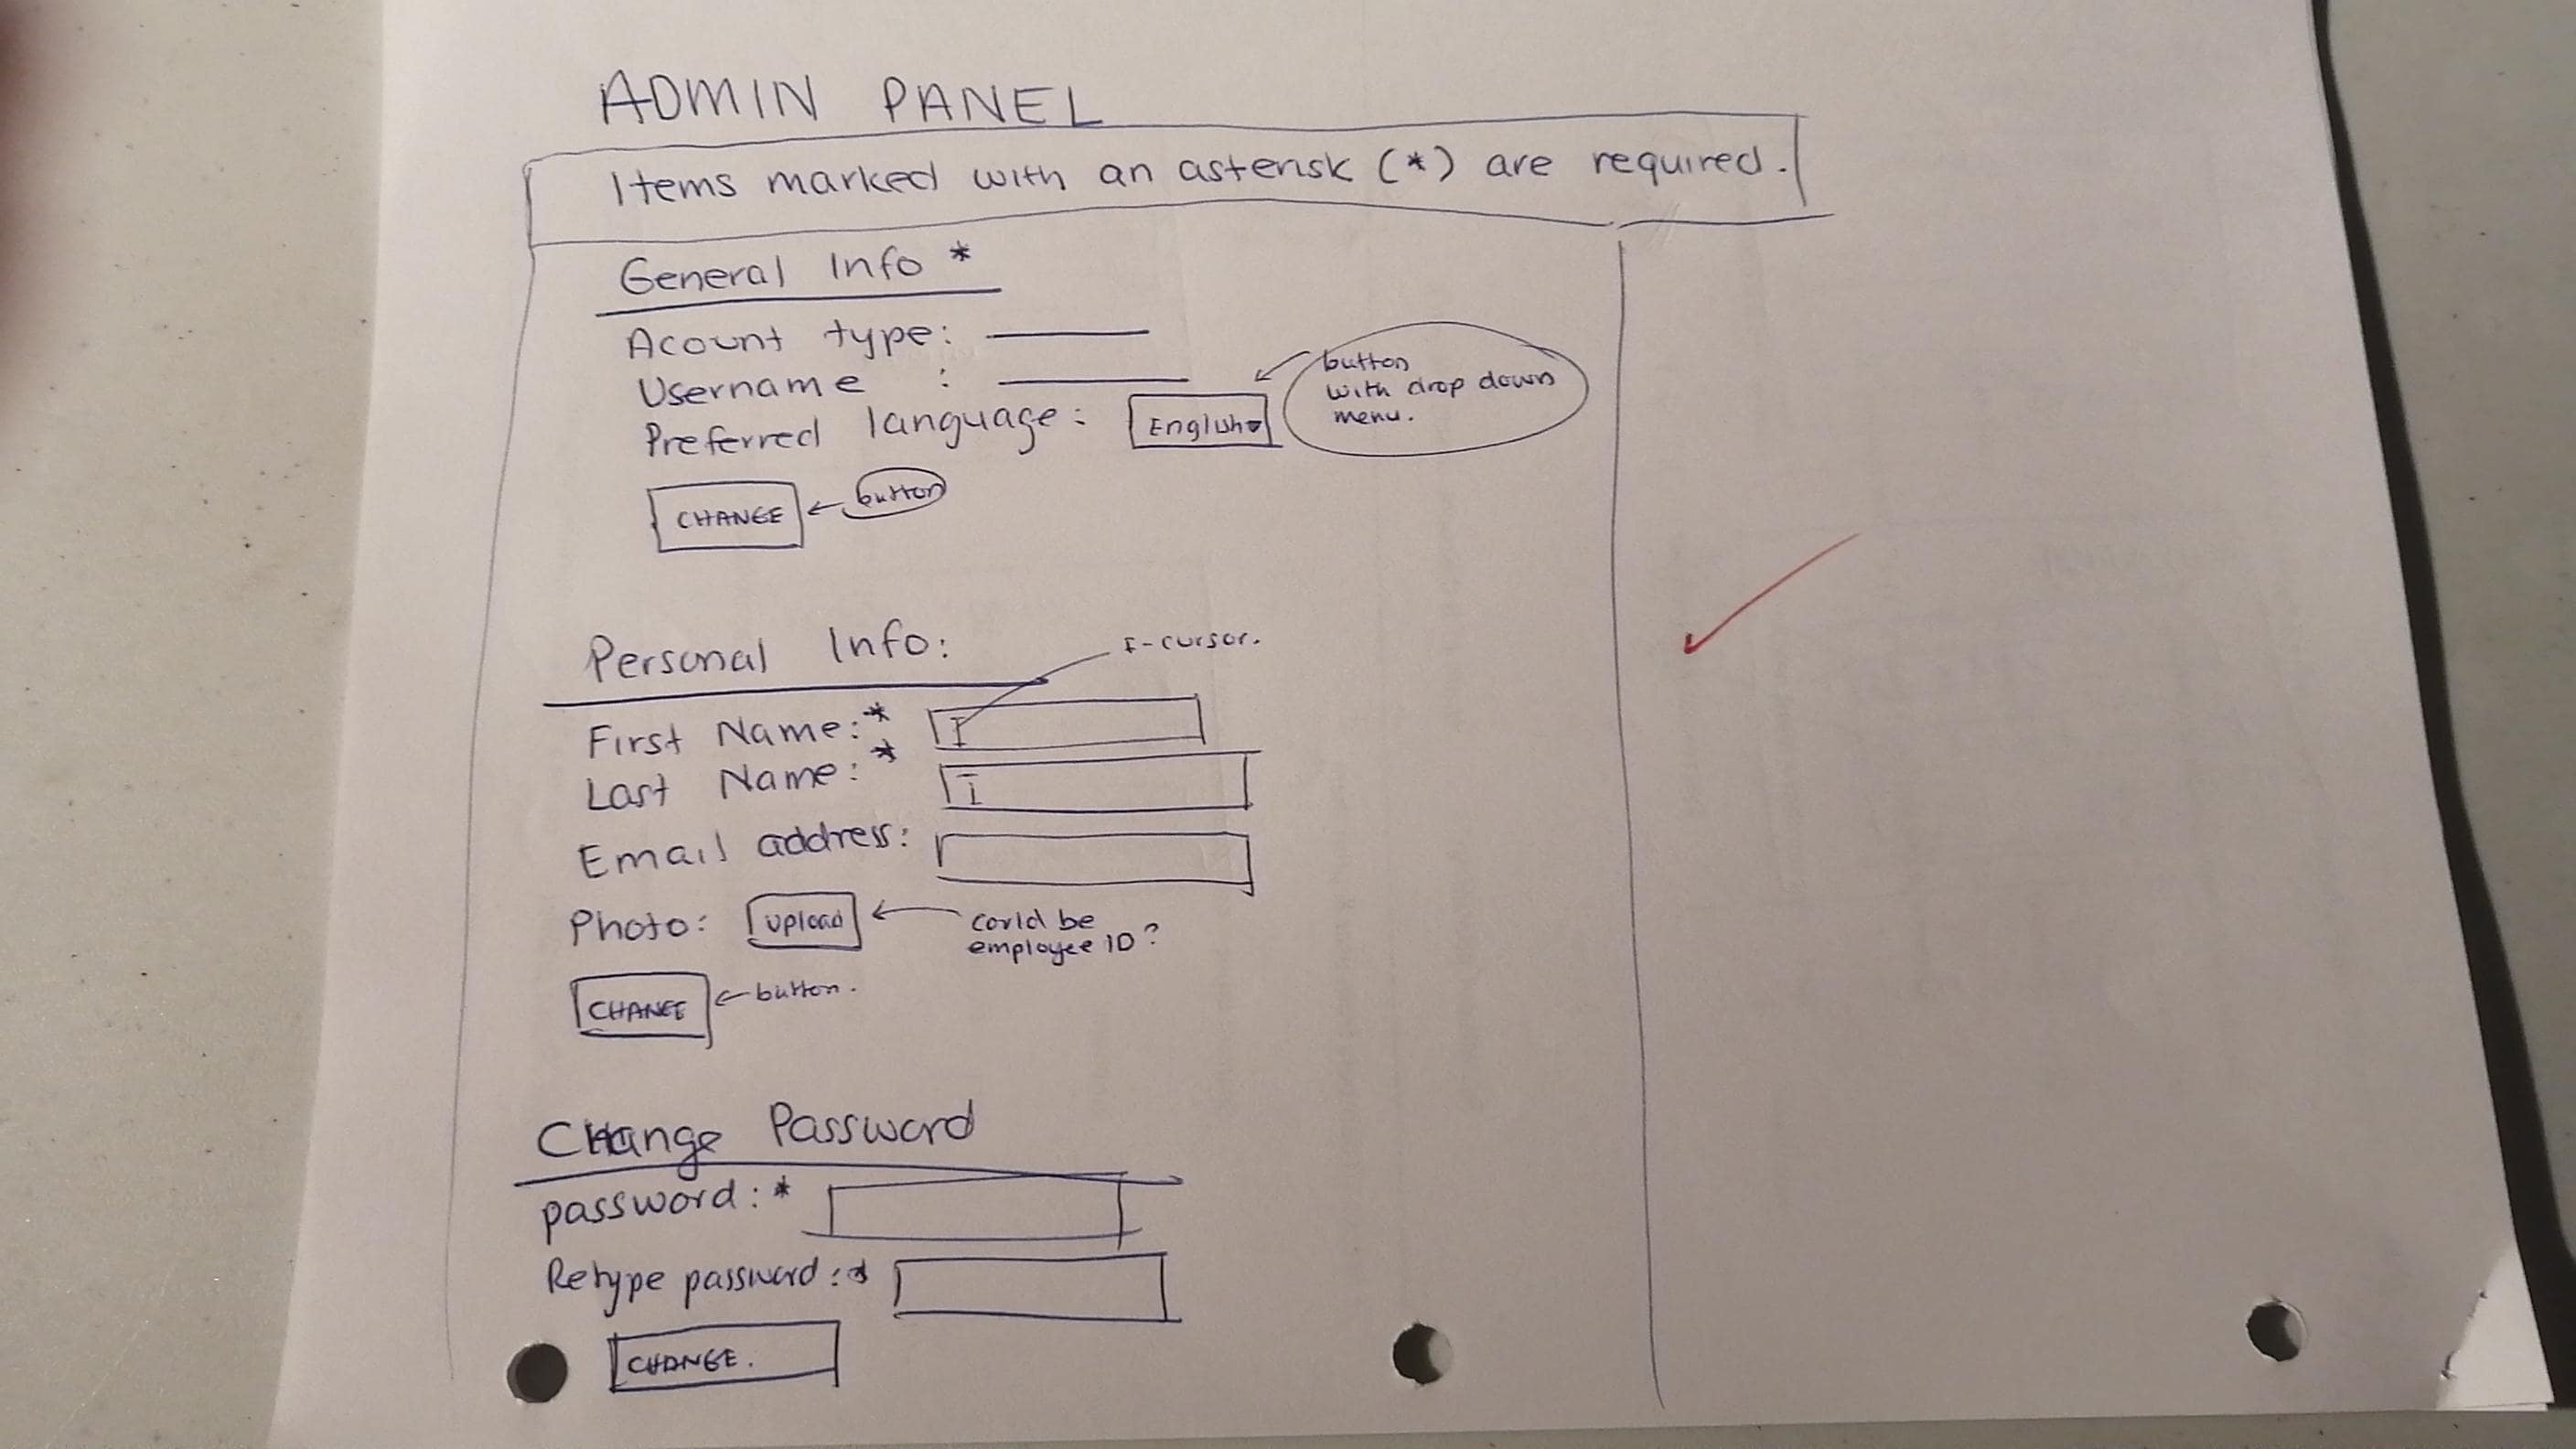 ADMIN PANEL
Items marked with an asterisk (*) are required.
General Info *
Acount type:
Username :
Preferred language: English
button
with drop down
menu.
CHANGE
button
Personal Info:
I-cursor.
First Name:* I
Last Name:* I
Email address:
Photo: upload
could be
employee ID?
CHANGE
button.
Change Password
password:*
Retype password:*
CHANGE.